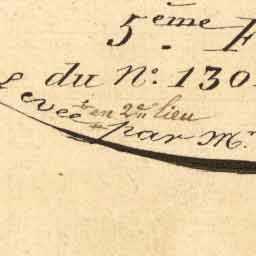 5.ème F
du N.º 130
evée en 2.me lieu
par M.r